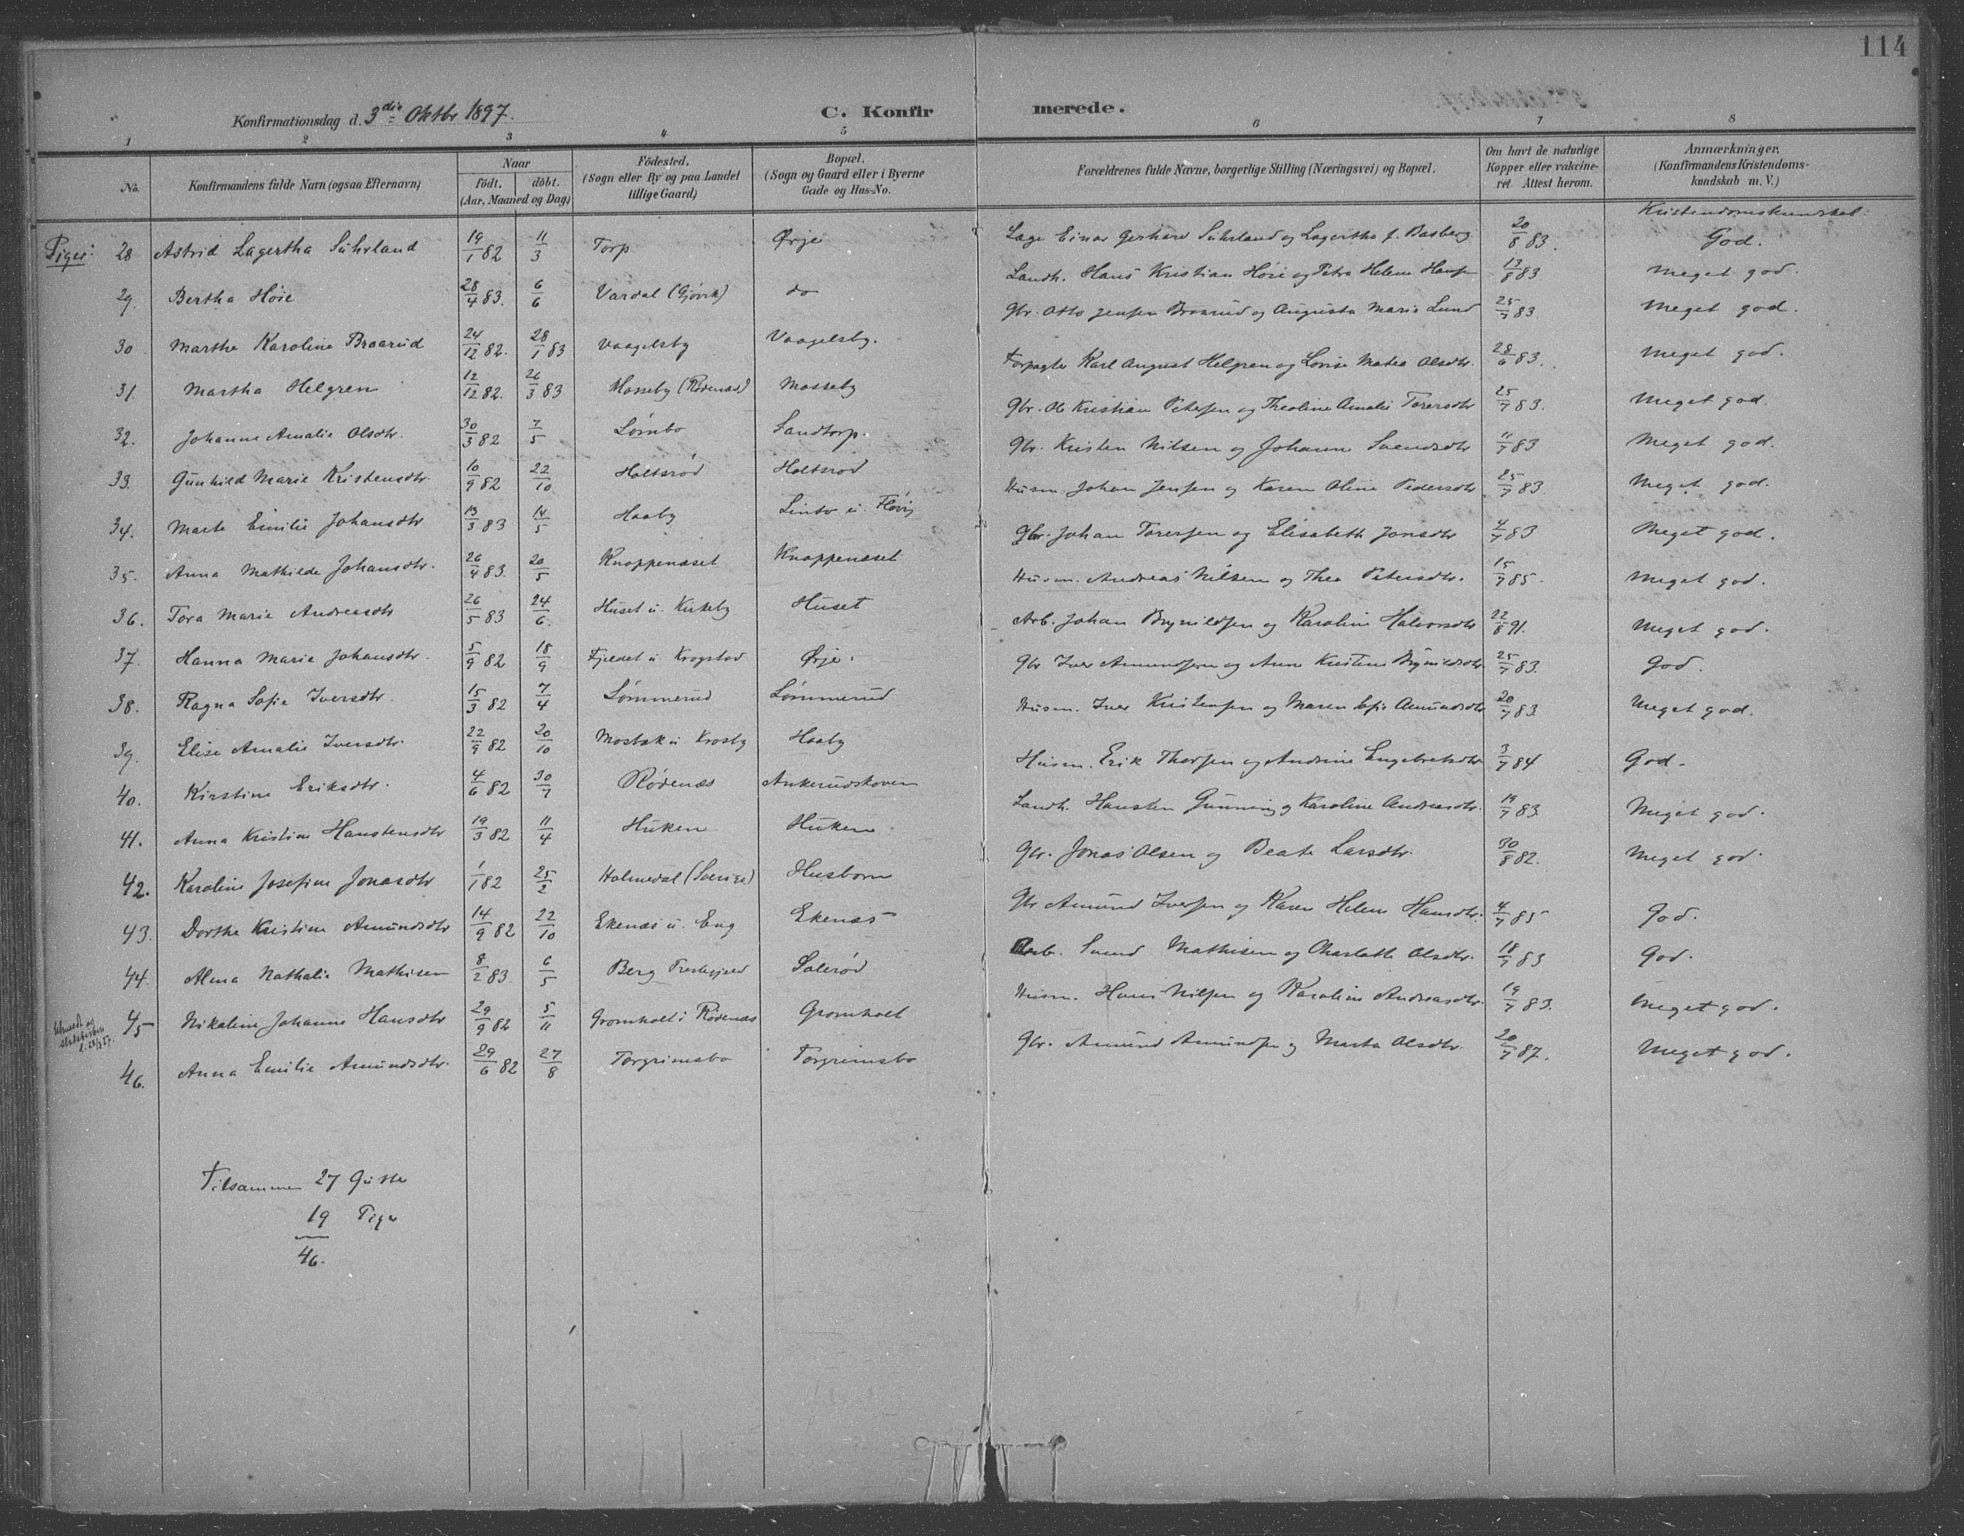 114
Konfirmationsdag d. 3die Oktbr 1897.
C. Konfirmerede.
1 2 3 4 5 6 7 8
No. Konfirmandens fulde Navn (ogsaa Efternavn) Naar født. døbt. (Aar, Maaned og Dag) Fødested. (Sogn eller By og paa Landet tillige Gaard) Bopæl. (Sogn og Gaard eller i Byerne Gade og Hus-No. Forældrenes fulde Navne, borgerlige Stilling (Næringsvei) og Bopæl. Om havt de naturlige Kopper eller vakcineret. Attest herom. Anmærkninger. (Konfirmandens Kristendomskundskab m. V.)
Kristendomskundskab:
Piger: 28 Astrid Lagertha Suhrland 19/1 82 11/3 Torp Ørje Lage Einar Gerhard Suhrland og Lagertha f. Basberg 20/8 83. God.
29. Bertha Høie 28/4 83. 6/6 Vardal (Gjøvik) do Landh. Hans Kristian Høie og Petra Helene Hansen 13/8 83 Meget god.
30 Marthe Karoline Braarud 24/12 82. 28/1 83 Vaagelsby Vaagelsby. Gbr. Otto Jensen Braarud og Augusta Marie Lund 25/7 83. Meget god.
31. Martha Helgren 12/12 82. 26/3 83 Mosseby (Rødenæs) Mosseby Forpagter Karl August Helgren og Lovise Matea Olsdtr. 28/6 83. Meget god.
32. Johanne Amalie Olsdtr. 30/3 82 7/5 Lømbo Sandtorp. Gbr. Ole Kristian Petersen og Theoline Amalie Torersdtr 25/7 83. Meget god.
33. Gunhild Marie Kristensdtr. 10/9 82 22/10 Holtsrød Holtsrød Gbr. Kristen Nilsen og Johanne Svendsdtr 11/7 83 Meget god.
34. Marte Emilie Johansdtr 13/3 83 14/5 Haaby Linbo u. Husm. Johan Jensen og Karen Oline Pedersdtr 25/7 83. Meget god.
35. Anna Mathilde Johansdtr. 26/4 83. 20/5 Knappenæset Knappenæset Gbr. Johan Torersen og Elisabeth Jonsdtr 4/7 83 Meget god.
36. Tora Marie Andreasdtr 26/5 83 24/6. Huset u. Kirkeby Huset Husm. Andreas Nilsen og Thea Petersdtr. 15/7 85. Meget god.
37. Hanna Marie Johansdtr. 5/9 82 18/9 Fjeldet u Krogstad Ørje. Arb. Johan Brynildsen og Karoline Halvorsdtr 22/8 91. Meget god.
38. Ragna Sofie Iversdtr. 15/3 82 7/4 Lømmerud Lømmerud Gbr Iver Amundsen og Anne Kristine Brynildsdtr 25/7 83. God.
39. Elise Amalie Iversdtr. 22/9 82 20/10 Mosbæk u Krosby Haaby Husm. Iver Kristensen og Maren Sofie Amundsdtr 20/7 83. Meget god.
40. Kirstine Eriksdtr. 4/6 82 30/7 Rødenæs Ankerudskoven Husm. Erik Thorsen og Andrine Engebretsdtr 3/7 84 God.
41. Anna Kristine Hanstensdtr 19/3 82 11/4 Huken Huken Landh. Hansten Gunning og Karoline Andreasdtr. 19/7 83. Meget god.
42. Karoline Josefine Jonasdtr 1/1 82 25/2 Holmedal (Sverige) Husborn Gbr. Jonas Olsen og Beate Larsdtr. 30/8 82. Meget god.
43. Dorthe Kristine Amundsdtr 14/9 82 22/10 Ekenæs u. Eng Ekenæs Gbr Amund Iversen og Karen Helene Hansdtr. 4/7 85 God.
44. Alma Nathalie Mathisen 8/2 83. 6/5 Berg Solerød Arb. Svend Mathisen og Charlotte Olsdtr. 18/7 83 God.
45 Nikoline Johanne Hansdtr 29/9 82 5/11 Gromholt i Rødenæs Gromholt Husm. Hans Nilsen og Karoline Andreasdtr. 19/7 83. Meget god.
46. Anna Emilie Amundsdtr. 29/6 82 27/8 Torgrimsbo Torgrimsbo Gbr. Amund Amundsen og Marta Olsdtr. 20/7 87. Meget god.
Tilsammen 27 Gutter
19 Piger
46.